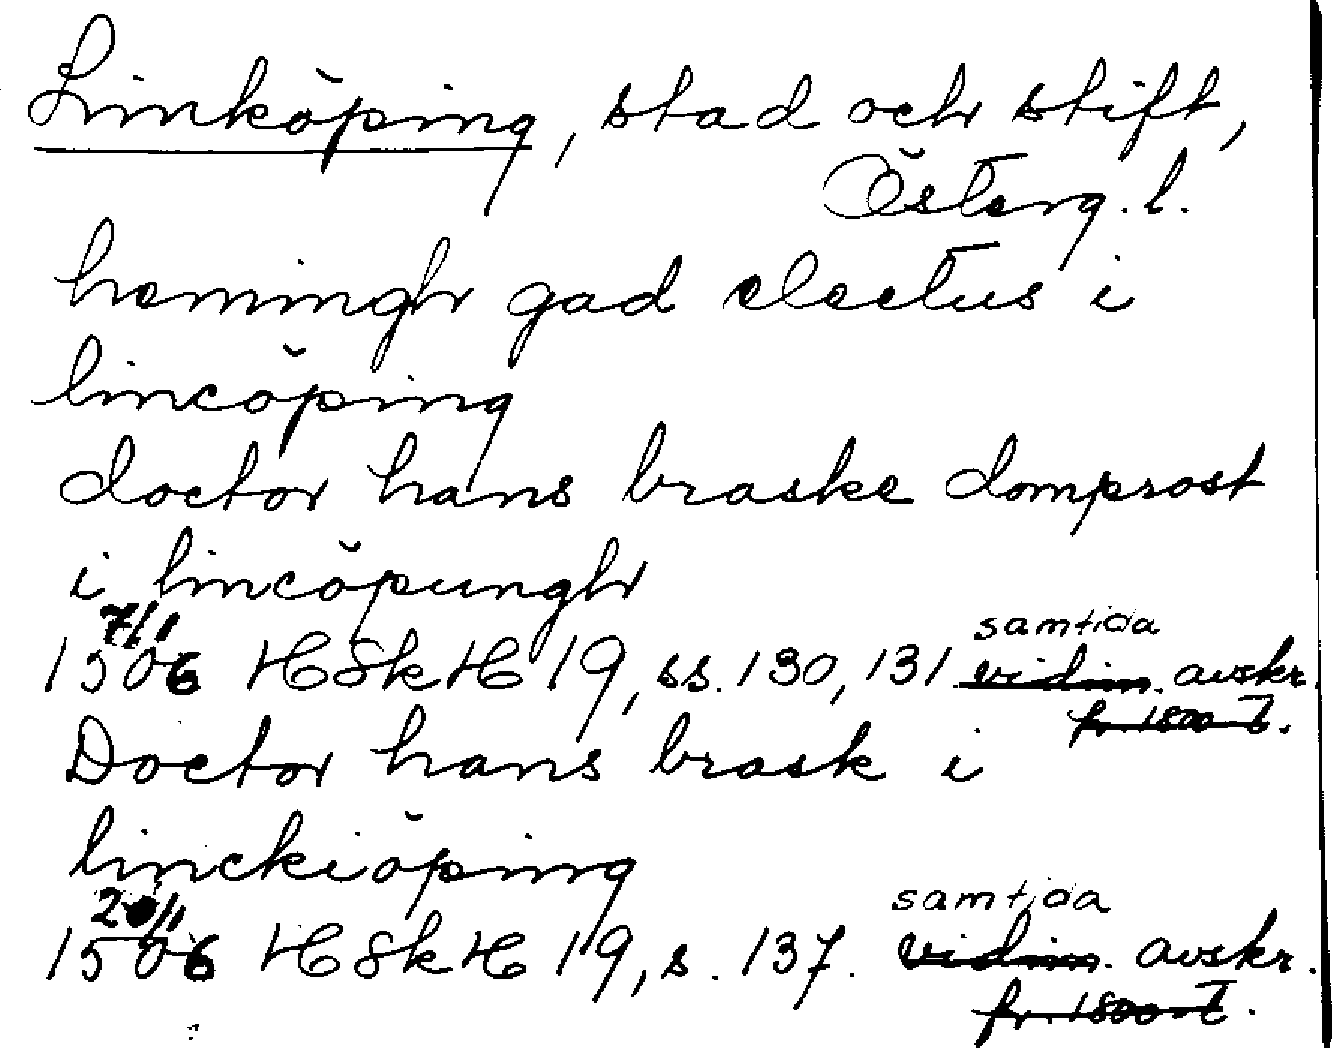 Linköping, stad och stift,
Österg. l.
hemingh gad electus i
lincöping
doctor hans braske domprost
i lincöpungh
7/1
1506 HSkH 19, ss. 130, 131 samtida vidim. avskr.
fr. 1800-t.
Doctor hans brask i
linckiöping
1506 HSkH 19, s. 137. samtida vidim. avskr.
fr. 1800-t.